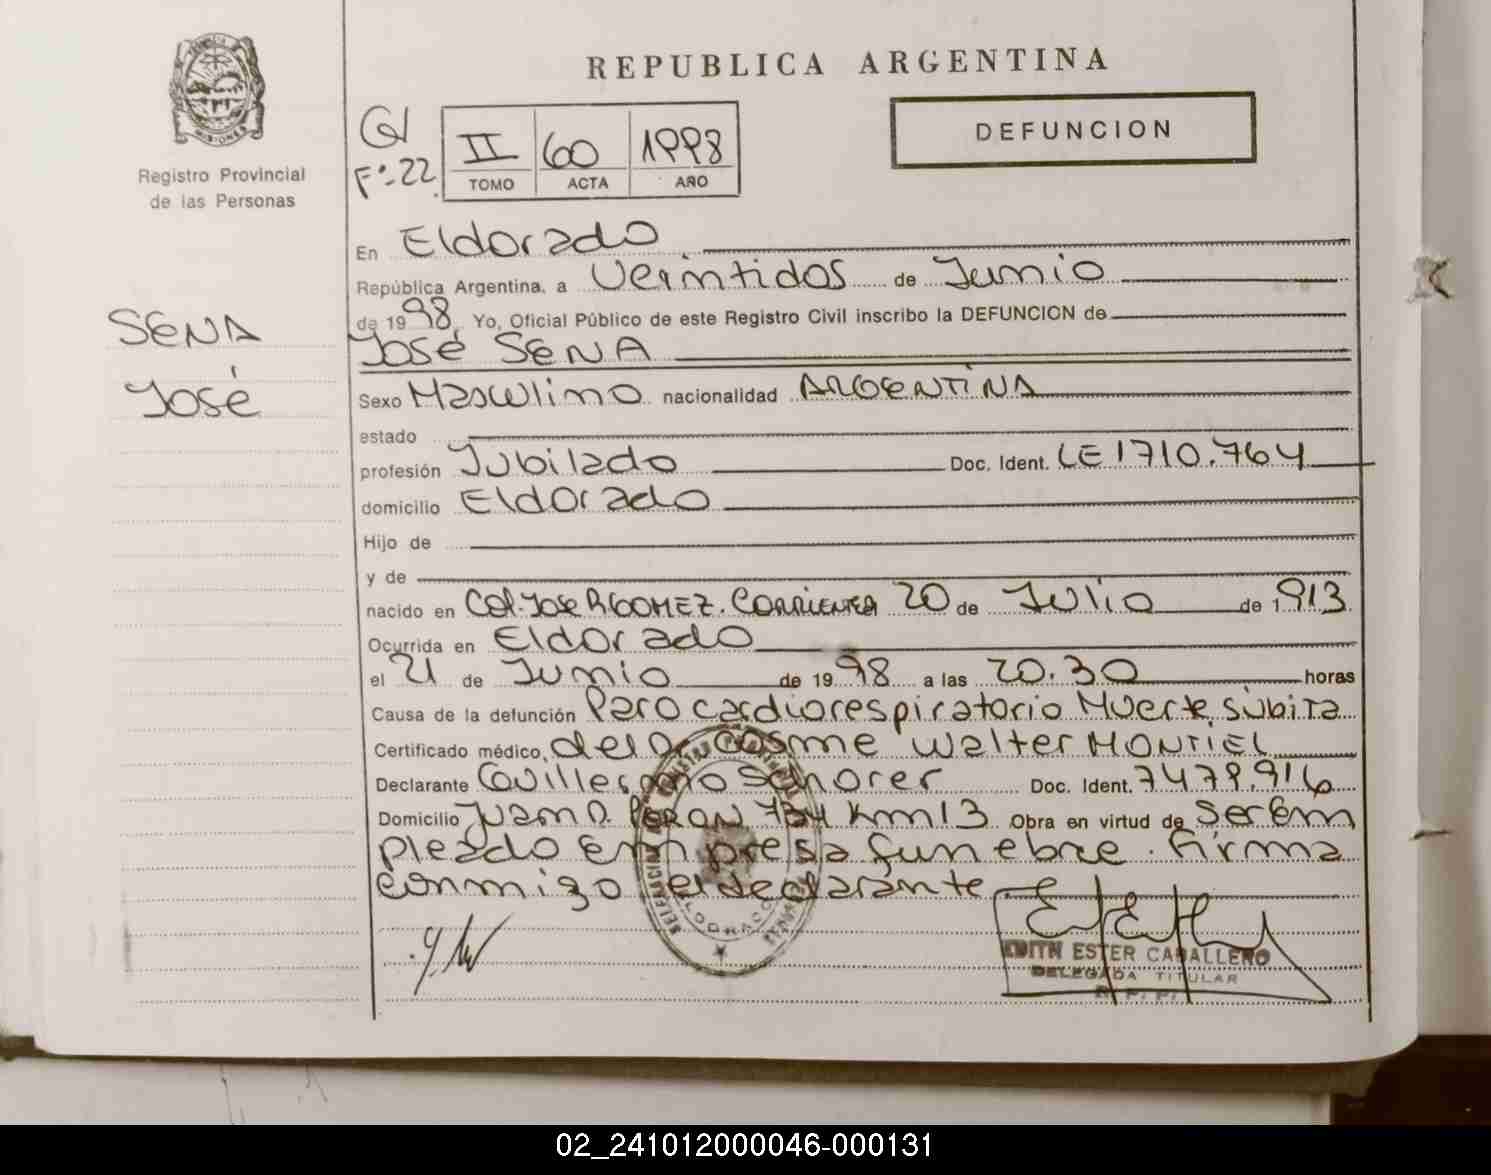 REPUBLICA ARGENTINA
DEFUNCION
MISIONES
Registro Provincial
de las Personas
F° 22
II 60 1998
TOMO ACTA AÑO
En Eldorado
República Argentina, a Veintidos de Junio
de 1998, Yo, Oficial Público de este Registro Civil inscribo la DEFUNCION de
José SENA
SENA
José
Sexo Masculino nacionalidad ARGENTINA
estado
profesión Jubilado Doc. Ident. LE 1710.764
domicilio Eldorado
Hijo de
y de
nacido en Col. José R GOMEZ. CORRIENTES 20 de Julio de 1913
Ocurrida en Eldorado
el 21 de Junio de 1998 a las 20.30 horas
Causa de la defunción Paro cardiorespiratorio Muerte súbita
Certificado médico, del Dr COSME Walter MONTIEL
Declarante Guillermo Doc. Ident. 7479.916
Domicilio Juan D. PERON 734 Km 13 Obra en virtud de Ser Em
pleado Empresa funebre. Firma
conmigo el declarante
EDITH ESTER CABALLERO
DELEGADA TITULAR
R. P. P.
ELDORADO
02_241012000046-000131